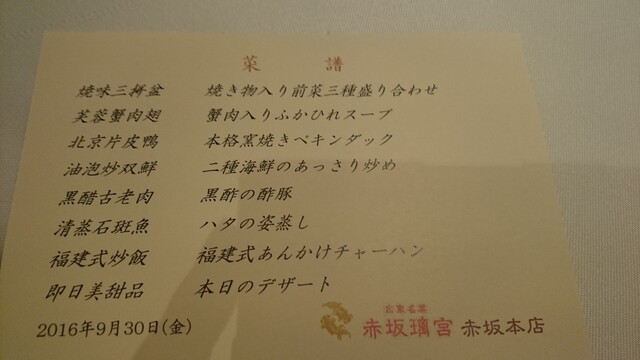 菜譜
燒味三拼盆 焼き物入り前菜三種盛り合わせ
芙蓉蟹肉翅 蟹肉入りふかひれスープ
北京片皮鴨 本格窯焼きペキンダック
油泡炒双鮮 二種海鮮のあっさり炒め
黒醋古老肉 黒酢の酢豚
清蒸石斑魚 ハタの姿蒸し
福建式炒飯 福建式あんかけチャーハン
即日美甜品 本日のデザート
広東名菜
2016年9月30日(金) 赤坂璃宮 赤坂本店